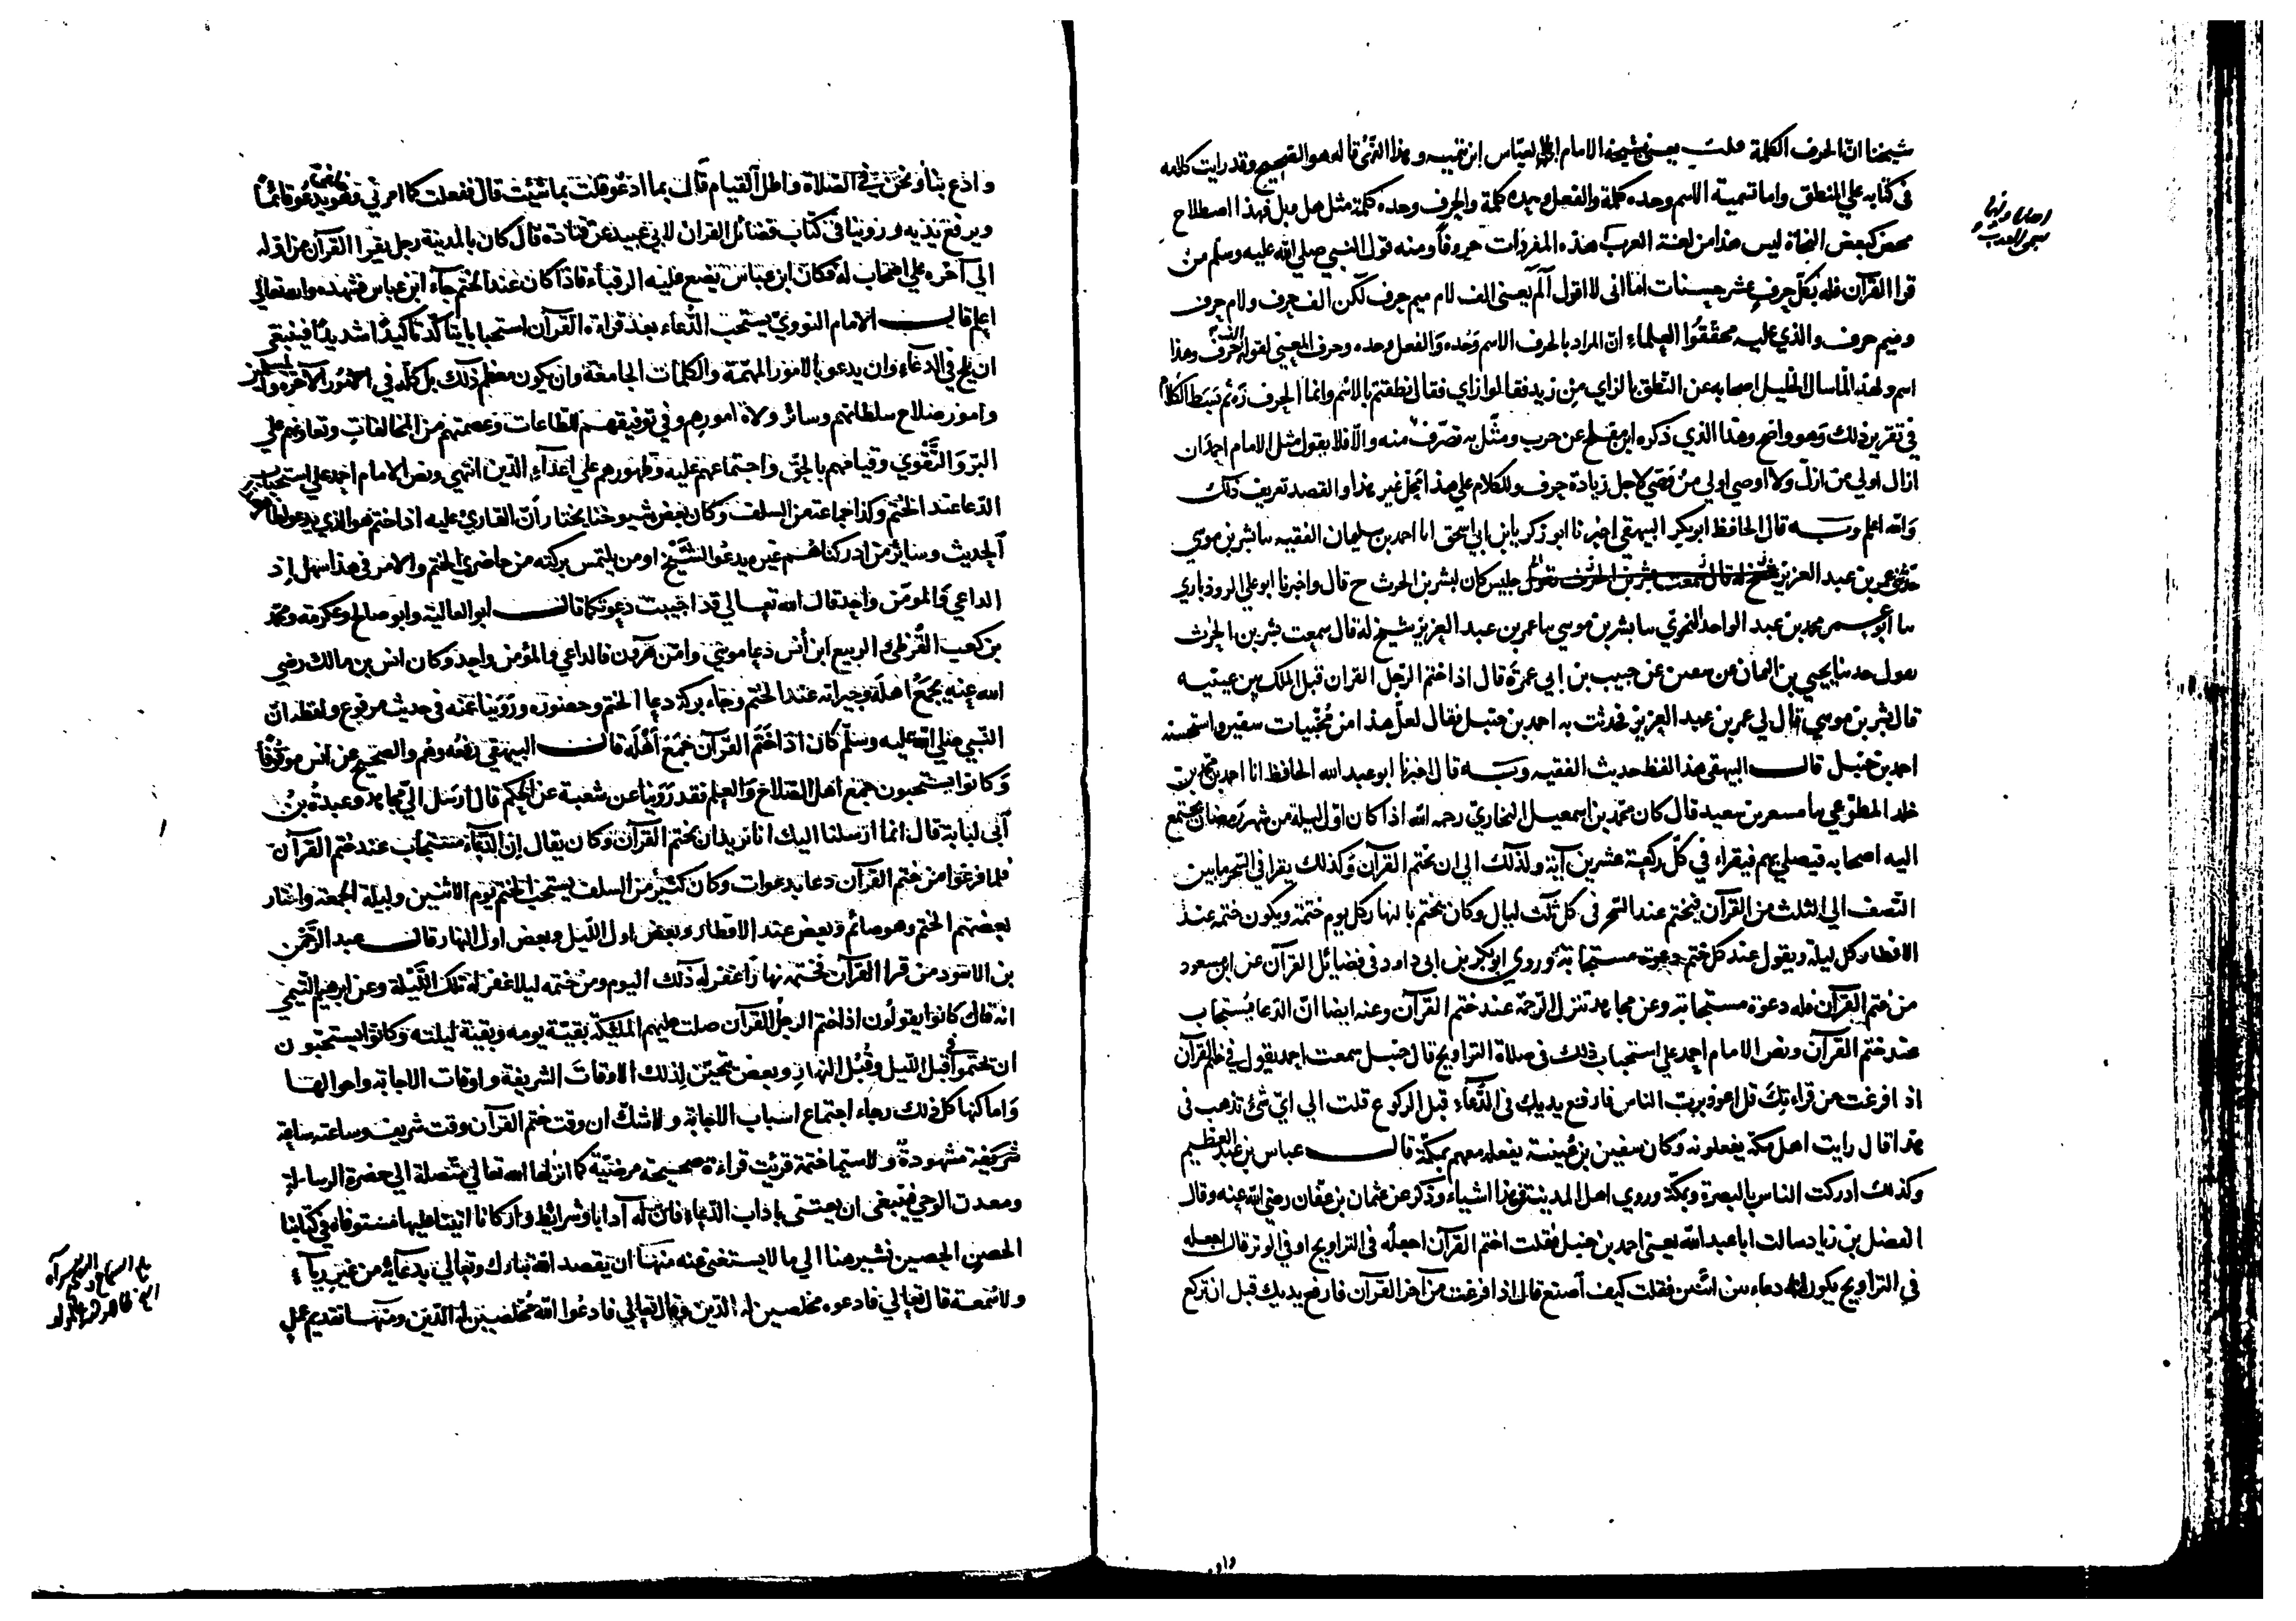 شيخنا ان الحرف الكلمة قلت يعني بشيخه الامام ابا العباس ابن تيمية وهذا الذي قاله هو الصحيح وقد رايت كلامه
في كتابه علي المنطق واما تسمية الاسم وحده كلمة والفعل وحده كلمة والحرف وحده كلمة مثل هل وبل فهذا اصطلاح
محض كبعض النحاة ليس هذا من لغة العرب هذه المفردات حروفا ومنه قول النبي صلي الله عليه وسلم من
قرا القرآن فله بكل حرف عشر حسنات اما اني لا اقول آلم يعني الف لام ميم حرف لكن الف حرف ولام حرف
وميم حرف والذي عليه محققوا العلماء ان المراد بالحرف الاسم وحده والفعل وحده وحرف المعني لقوله الف حرف وهذا
اسم ولهذا لما سال الخليل اصحابه عن النطق بالزاي من زيد فقالوا زاي فقال نطقتم بالاسم وانما الحرف زه ثم بسط الكلام
في تقرير ذلك وهو واضح وهذا الذي ذكره ابن مفلح عن حرب ومثل به تصرف منه والا فلا يقول مثل الامام احمد ان
ازال اولي من ازل ولا اوصي اولي من وصي لاجل زيادة حرف وللكلام علي هذا محل غير هذا والقصد تعريف ذلك
والله اعلم وبه قال الحافظ ابو بكر البيهقي اخبرنا ابو زكريا بن ابي اسحق انا احمد بن سليمان الفقيه سا بشر بن موسي
حدثني عمر بن عبد العزيز جليس كان لبشر بن الحرث ح قال واخبرنا ابو علي الروذباري
سا ابو عمر محمد بن عبد الواحد النحوي سا بشر بن موسي سا عمر بن عبد العزيز شيخ له قال سمعت بشر بن الحرث
يقول حدثنا يحيي بن اليمان عن سفين عن حبيب بن ابي عمرة قال اذا ختم الرجل القران قبل الملك بين عينيه
قال بشر بن موسي قال لي عمر بن عبد العزيز فحدثت به احمد بن حنبل فقال لعل هذا من مخبيات سفين واستحسنه
احمد بن حنبل قال البيهقي هذا لفظ حديث الفقيه وبه قال اخبرنا ابو عبد الله الحافظ انا احمد بن محمد بن
خلد المطوعي سا مسعر بن سعيد قال كان محمد بن اسمعيل البخاري رحمه الله اذا كان اول ليلة من شهر رمضان يجتمع
اليه اصحابه فيصلي بهم فيقراء في كل ركعة عشرين آية وكذلك الي ان يختم القرآن وكذلك يقرا في السحر ما بين
النصف الي الثلث من القرآن فيختم عند السحر في كل ثلث ليال وكان يختم بالنهار كل يوم ختمة ويكون ختمه عند
الافطار كل ليلة ويقول عند كل ختم دعوة مستجابة وروي ابو بكر بن ابي داود في فضائل القرآن عن ابن مسعود
من ختم القرآن فله دعوة مستجابة وعن مجاهد تنزل الرحمة عند ختم القرآن وعنه ايضا ان الدعا يستجاب
عند ختم القرآن ونص الامام احمد علي استحباب ذلك في صلاة التراويح قال حنبل سمعت احمد يقول في ختم القرآن
اذا فرغت من قراءتك قل اعوذ برب الناس فارفع يديك في الدعاء قبل الركوع قلت الي اي شئ تذهب في
هذا قال رايت اهل مكة يفعلونه وكان سفين بن عيينة يفعله معهم بمكة قال عباس بن عبد العظيم
وكذلك ادركت الناس بالبصرة وبمكة وروي اهل المدينة في هذا اشياء وذكر عن عثمان بن عفان رضي الله عنه وقال
الفضل بن زياد سالت ابا عبد الله يعني احمد بن حنبل فقلت اختم القرآن اجعله في التراويح او في الوتر قال اجعله
في التراويح يكون لنا دعاء بين اثنين فقلت كيف اصنع قال اذا فرغت من آخر القرآن فارفع يديك قبل ان تركع
واد
وادع بنا ونحن في الصلاة واطل القيام قال بما ادعو قلت بما شئت قال ففعلت كما امرني وهو خلفي يدعو قائما
ويرفع يديه وروينا في كتاب فضائل القران لابي عبيد عن قتادة قال كان بالمدينة رجل يقرا القرآن من اوله
الي آخره علي اصحاب له فكان ابن عباس يضع عليه الرقباء فاذا كان عند الختم جاء ابن عباس فشهده والله تعالي
اعلم قال الامام النووي يستحب الدعاء بعد قراءة القرآن استحبابا يتاكد تاكيدا شديدا فينبغي
ان يلح في الدعاء وان يدعو بالامور المهمة والكلمات الجامعة وان يكون معظم ذلك بل كله في امور الآخرة وامور المسلمين
وامور صلاح سلطانهم وسائر ولاة امورهم وفي توفيقهم للطاعات وعصمتهم من المخالفات وتعاونهم علي
البر والتقوي وقيامهم بالحق واجتماعهم عليه وظهورهم علي اعداء الدين انتهي ونص الامام احمد علي استحباب
الدعا عند الختم وكذا جماعة من السلف وكان بعض شيوخنا يختار أن القارئ عليه اذا ختم هو الذي يدعو لظاهر
الحديث وسائر من ادركناهم غيره يدعو الشيخ او من يلتمس بركته من حاضري الختم والامر في هذا سهل إذ
الداعي والمؤمن واحد قال الله تعالي قد اجيبت دعوتكما قال ابو العالية وابو صالح وعكرمة ومحمد
بن كعب القرظي والربيع ابن أنس دعا موسي وامن هرون فالداعي والمؤمن واحد وكان انس بن مالك رضي
الله عنه يجمع اهله وجيرانه عند الختم رجاء بركة دعا الختم وحضوره وروينا عنه في حديث مرفوع ولفظه ان
النبي صلي الله عليه وسلم كان اذا ختم القرآن جمع أهله قال البيهقي رفعه وهم والصحيح عن انس موقوفا
وكانوا يستحبون جمع اهل الصلاح والعلم فقد روينا عن شعبة عن الحكم قال ارسل الي مجاهد وعبدة بن
أبي لبابة قال انما ارسلنا اليك انا نريد ان نختم القرآن وكان يقال إن الدعاء مستجاب عند ختم القرآن
فلما فرغوا من ختم القرآن دعا بدعوات وكان كثير من السلف يستحب الختم يوم الاثنين وليلة الجمعة واختار
بعضهم الختم وهو صائم وبعض عند الافطار وبعض اول الليل وبعض اول النهار قال عبد الرحمن
بن الاسود من قرا القرآن فختمه نهارا غفر له ذلك اليوم ومن ختمه ليلا غفر له تلك الليلة وعن ابرهيم التيمي
انه قال كانوا يقولون اذا ختم الرجل القرآن صلت عليهم الملئكة بقية يومه وبقية ليلته وكانوا يستحبون
ان يختموا في قبل الليل وقبل النهار وبعض يتحين لذلك الاوقات الشريفة واوقات الاجابة واحوالها
واماكنها كل ذلك رجاء اجتماع اسباب الاجابة ولا شك ان وقت ختم القرآن وقت شريف وساعته ساعة
شريفة مشهودة ولا سيما ختمة قرئت قراءة صحيحة مرضية كما انزلها الله تعالي متصلة الي حضرة الرسالة
ومعدن الوحي فينبغي ان يعتني باداب الدعاء فان له آدابا وشرائط واركانا اتينا عليها مستوفاه في كتابنا
الحصن الحصين نشير هنا الي ما لا يستغني عنه منها ان يقصد الله تبارك وتعالي بدعائه من غير رياء
ولا سمعة قال تعالي فادعوه مخلصين له الدين وقال تعالي فادعوا الله مخلصين له الدين ومنها تقديم عمل